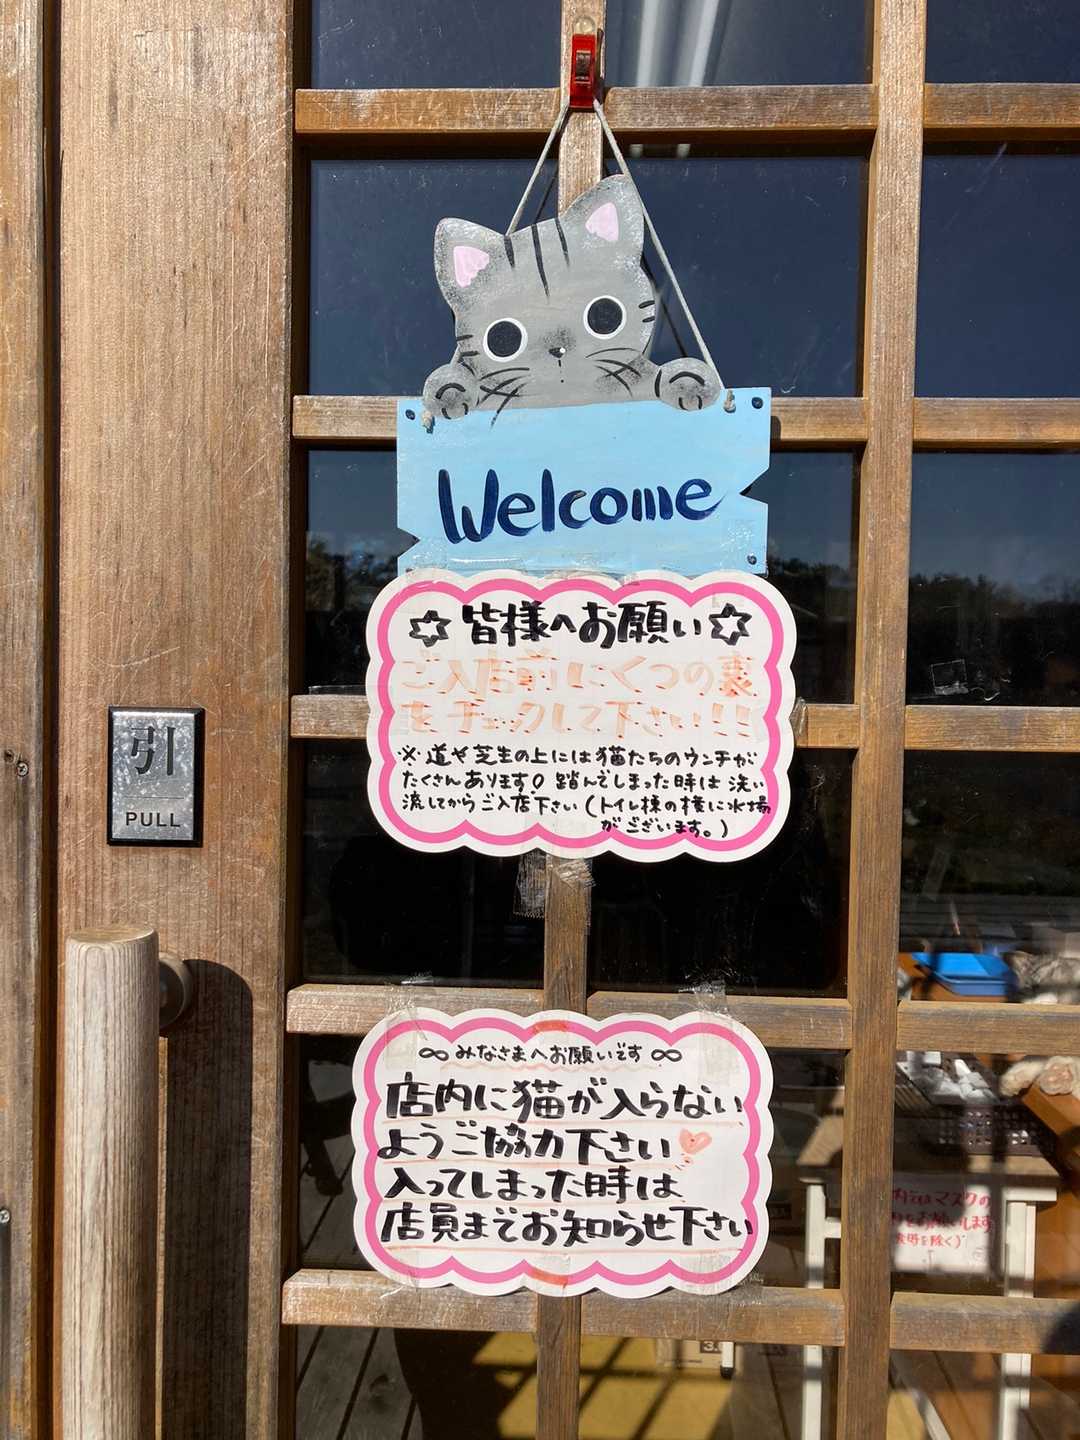 Welcome
☆皆様へお願い☆
ご入店前にくつの裏
をチェックして下さい!!
※道や芝生の上には猫たちのウンチが
たくさんあります。踏んでしまった時は洗い
流してからご入店下さい(トイレ棟の横に水場
がございます。)
引
PULL
∞みなさまへお願いです∞
店内に猫が入らない
ようご協力下さい♡
入ってしまった時は
店員までお知らせ下さい
マスクの
をお願いします
を除く)